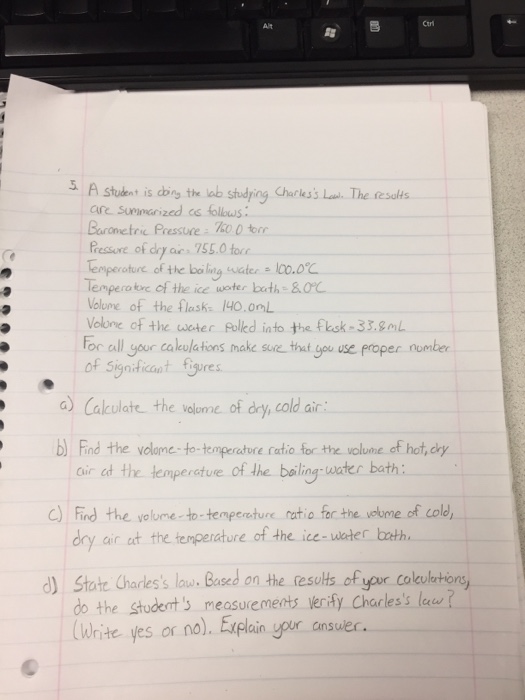 Alt
Ctrl
5. A student is doing the lab studying Charles's Law. The results
are summarized as follows:
Barometric Pressure = 760.0 torr
Pressure of dry air = 755.0 torr
Temperature of the boiling water = 100.0°C
Temperature of the ice water bath = 8.0°C
Volume of the flask = 140.0mL
Volume of the water pulled into the flask = 33.8mL
For all your calculations make sure that you use proper number
of significant figures
a) Calculate the volume of dry, cold air:
b) Find the volume-to-temperature ratio for the volume of hot, dry
air at the temperature of the boiling-water bath:
c) Find the volume-to-temperature ratio for the volume of cold,
dry air at the temperature of the ice-water bath.
d) State Charles's law. Based on the results of your calculations,
do the student's measurements verify Charles's law?
(Write yes or no). Explain your answer.